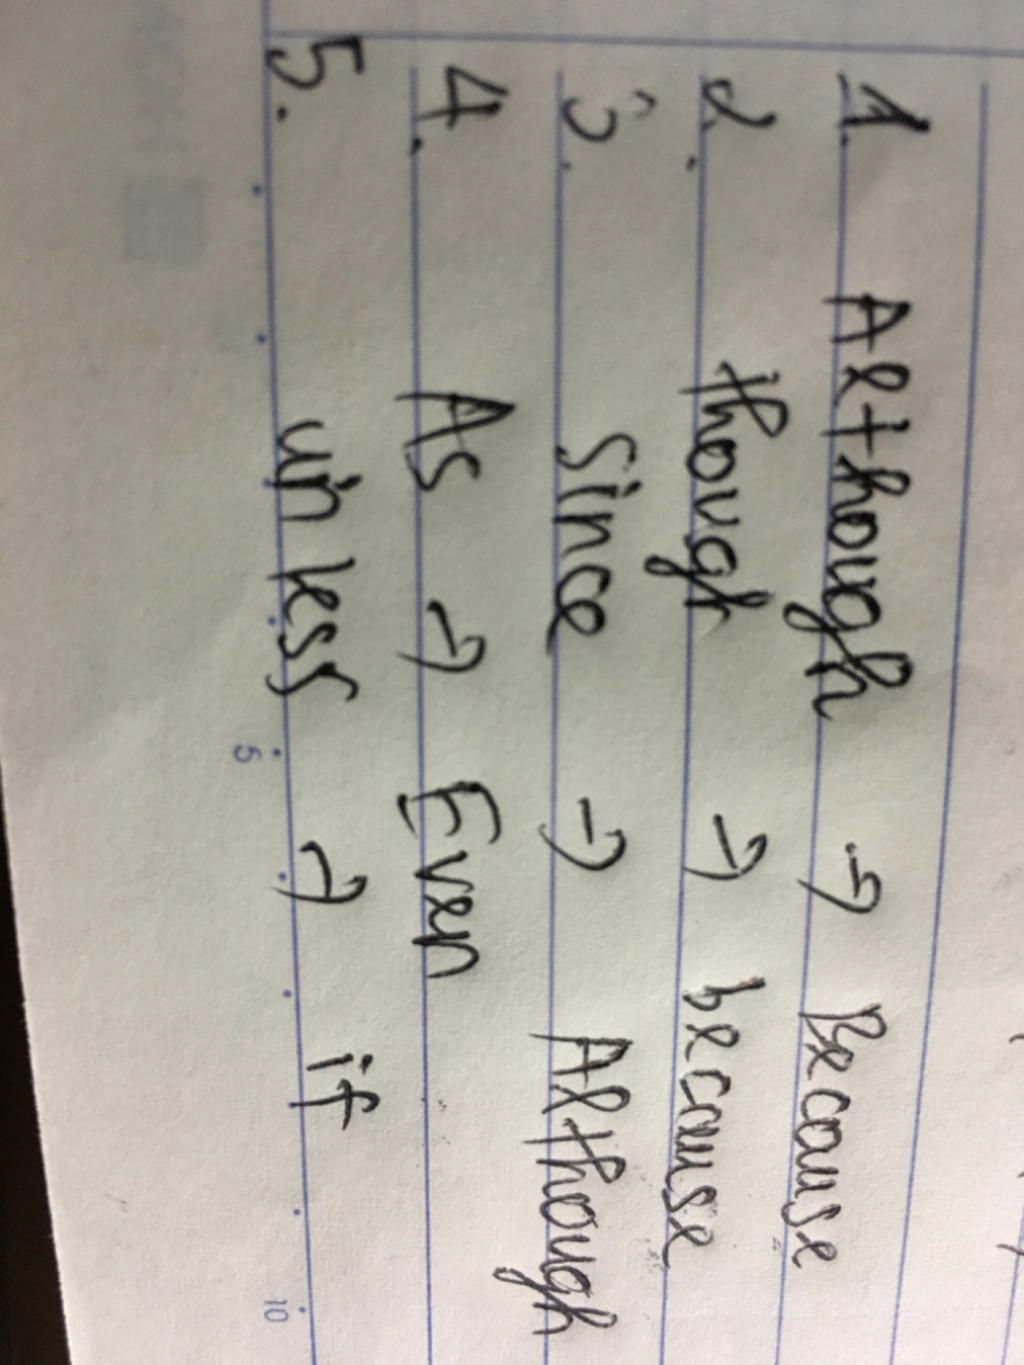 1. Although → Because
2. though → because
3. Since → Although
4. As → Even
5. unless → if
5
10